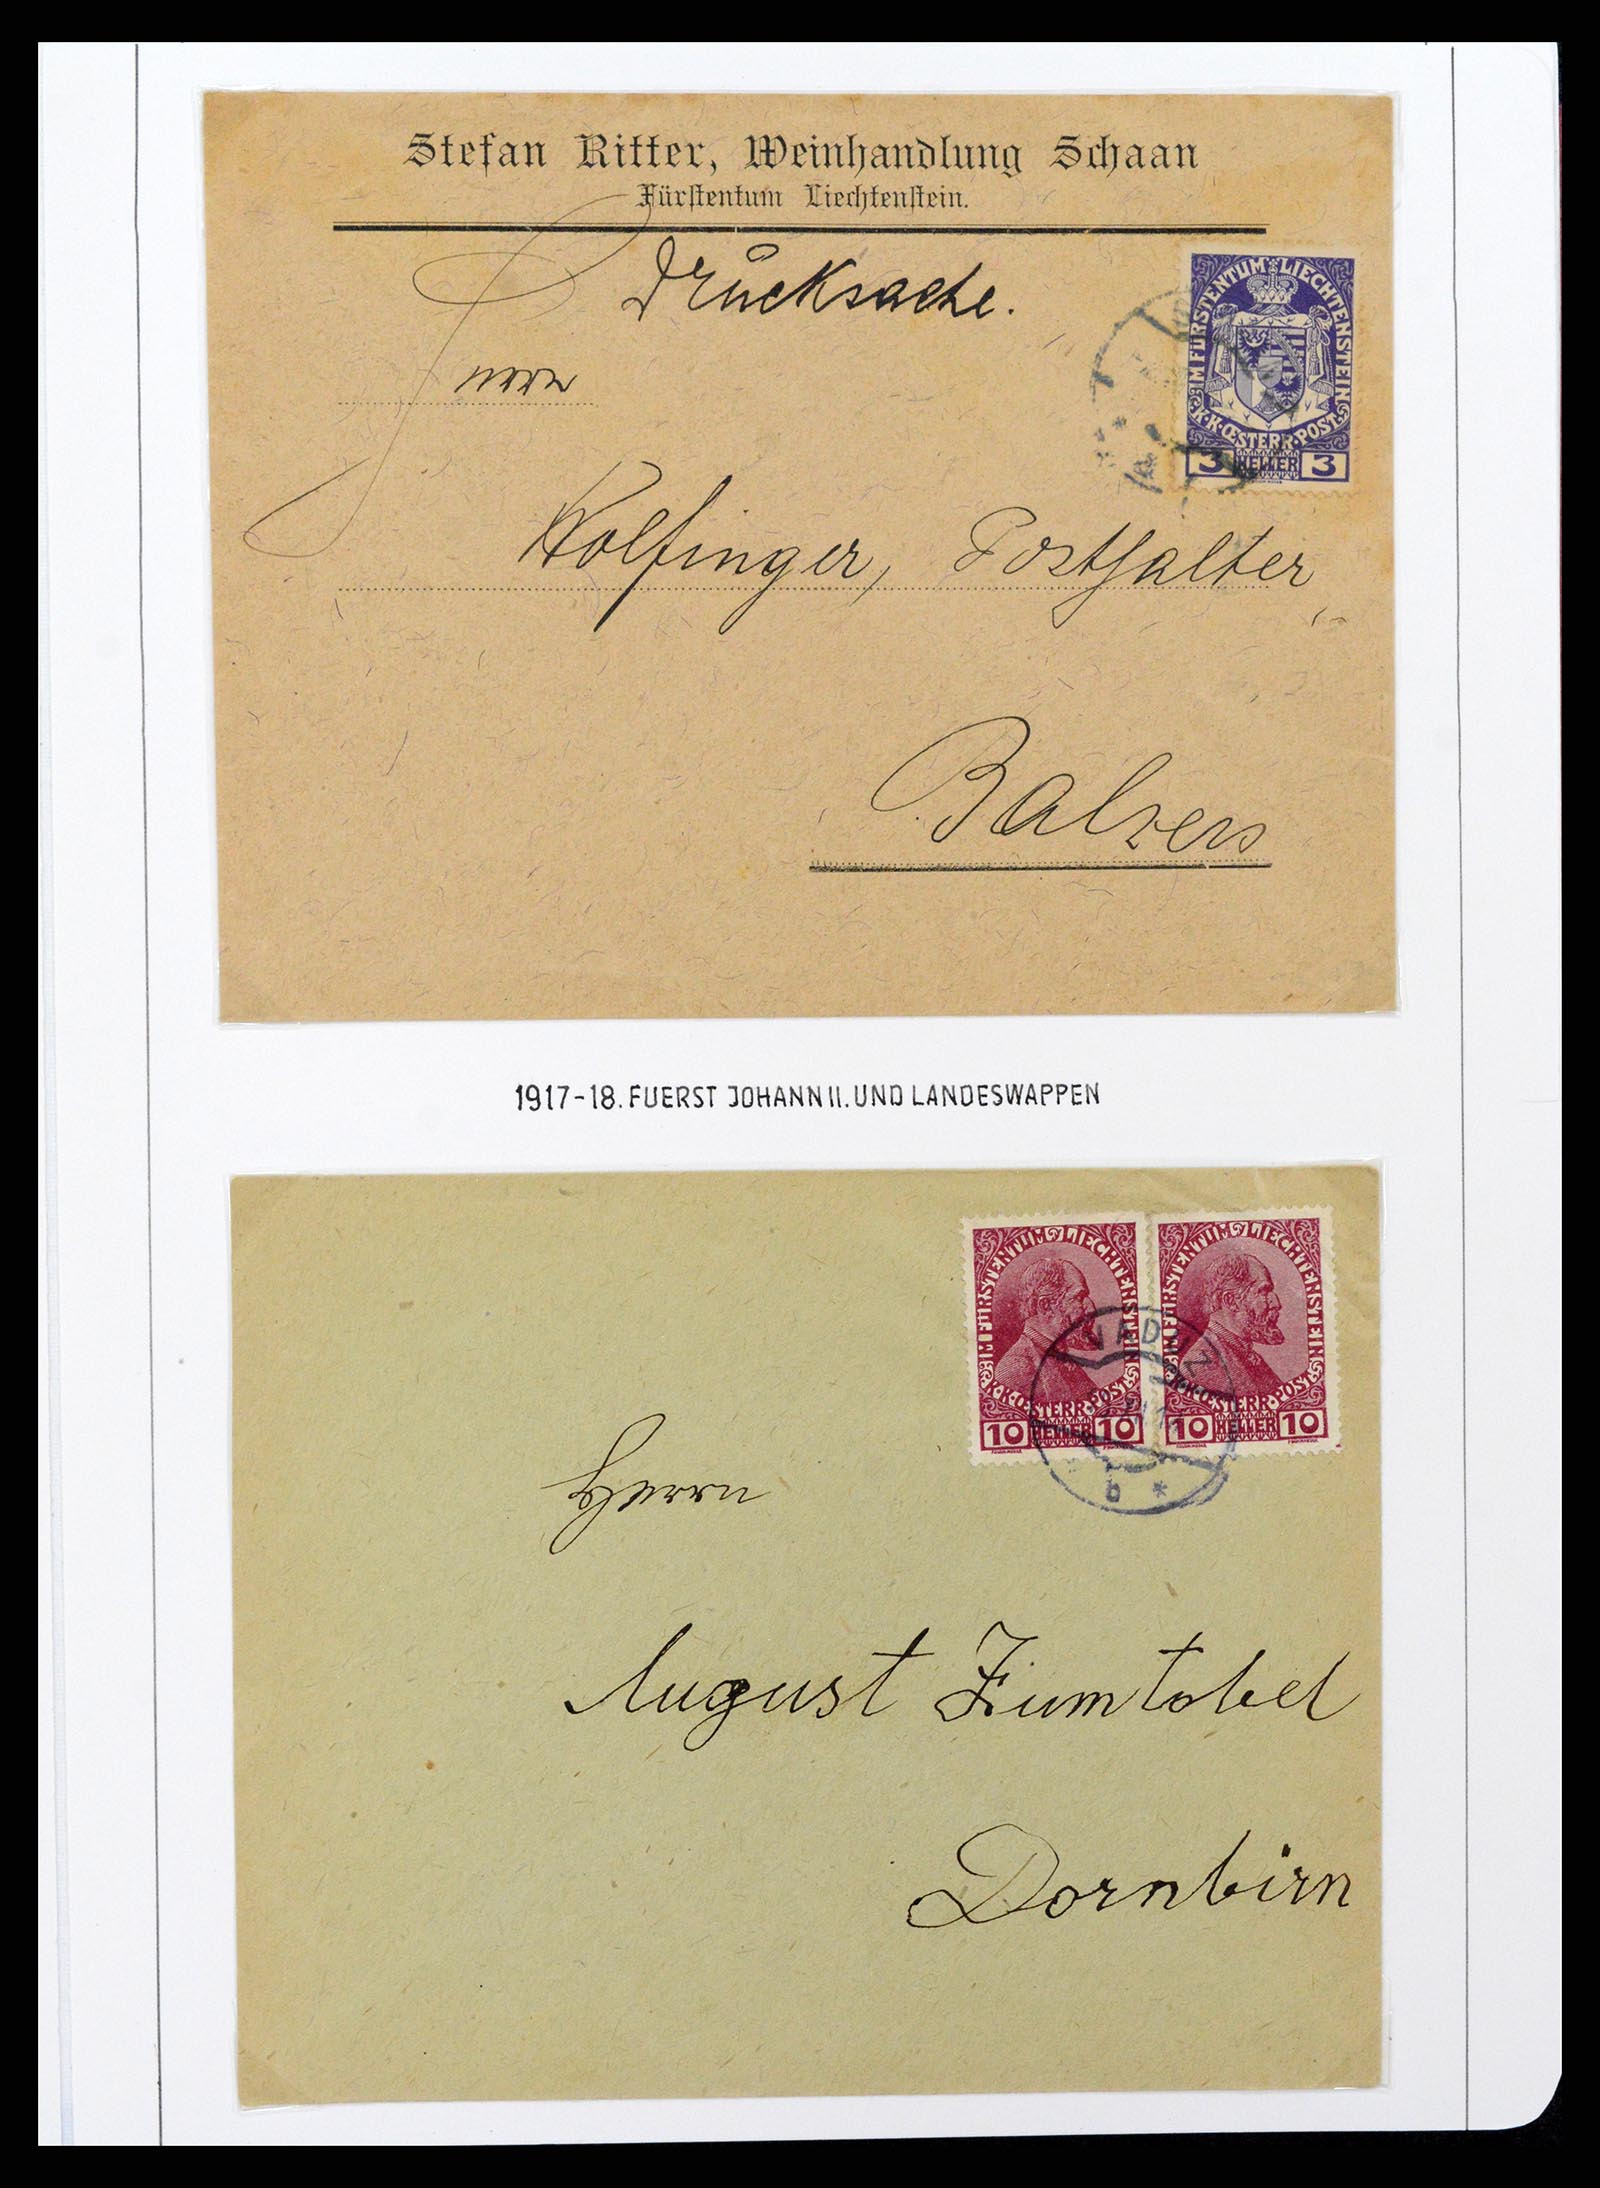 Stefan Ritter, Weinhandlung Schaan
Fürstentum Liechtenstein.
Drucksache.
Herrn
Wolfinger, Posthalter
Balzers
IM FÜRSTENTUM LIECHTENSTEIN
K.K. OESTERR. POST
3 HELLER 3
1917-18. FUERST JOHANN II. UND LANDESWAPPEN
IM FÜRSTENTUM LIECHTENSTEIN
K.K. OESTERR. POST
10 HELLER 10
IM FÜRSTENTUM LIECHTENSTEIN
K.K. OESTERR. POST
10 HELLER 10
VADUZ
b *
Herrn
August Zumtobel
Dornbirn